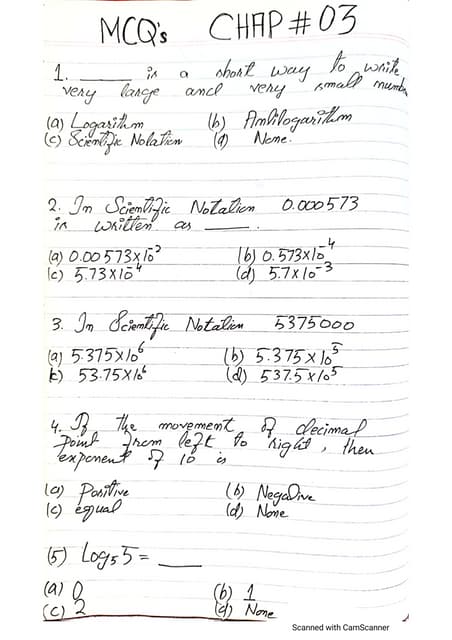 MCQ's CHAP # 03
1. ______ is a short way to write
very large and very small number
(a) Logarithm (b) Antilogarithm
(c) Scientific Notation (d) None.
2. In Scientific Notation 0.000573
is written as ____.
(a) 0.00573x10⁻³ (b) 0.573x10⁻⁴
(c) 5.73x10⁻⁴ (d) 5.7x10⁻³
3. In Scientific Notation 5375000
(a) 5.375x10⁶ (b) 5.375x10⁵
(c) 53.75x10⁶ (d) 537.5x10⁵
4. If the movement of decimal
point from left to right, then
exponent of 10 is
(a) Positive (b) Negative
(c) equal (d) None
(5) Log₅5 = ____
(a) 0 (b) 1
(c) 2 (d) None
Scanned with CamScanner